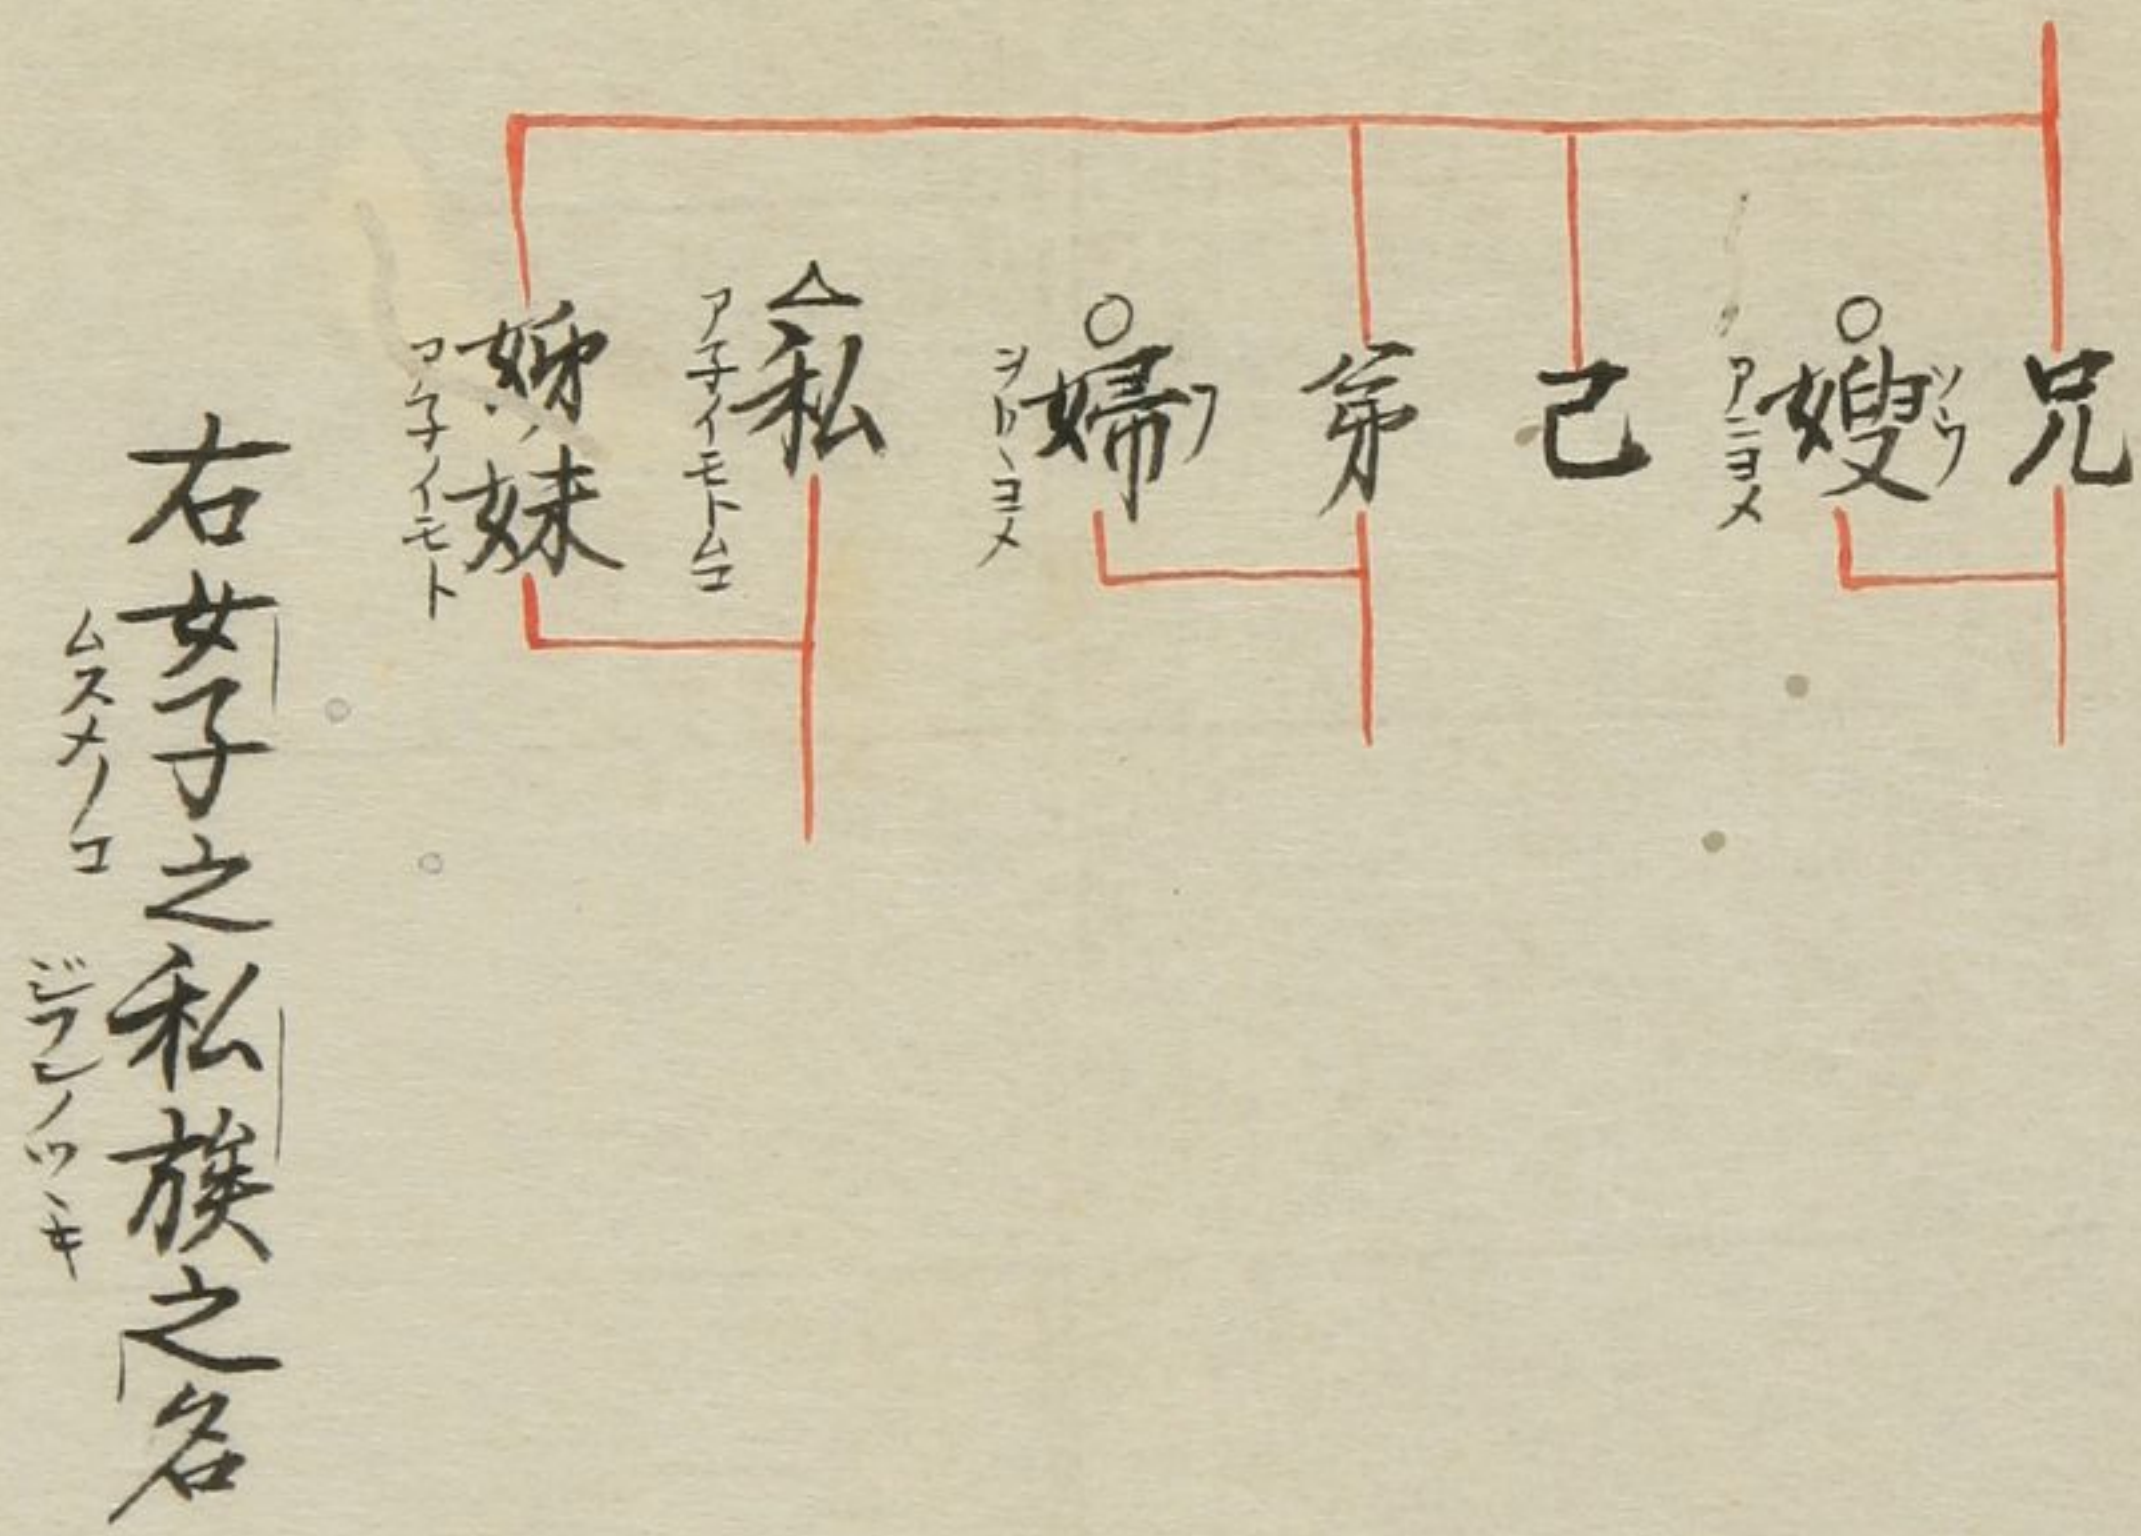 兄
嫂 ソウ
アニヨメ
己
弟
○
婦 フ
ヲトヽヨメ
△
私
ア子イモトムコ
姊妹
ア子イモト
右女子之私族之名
ムスメノコ